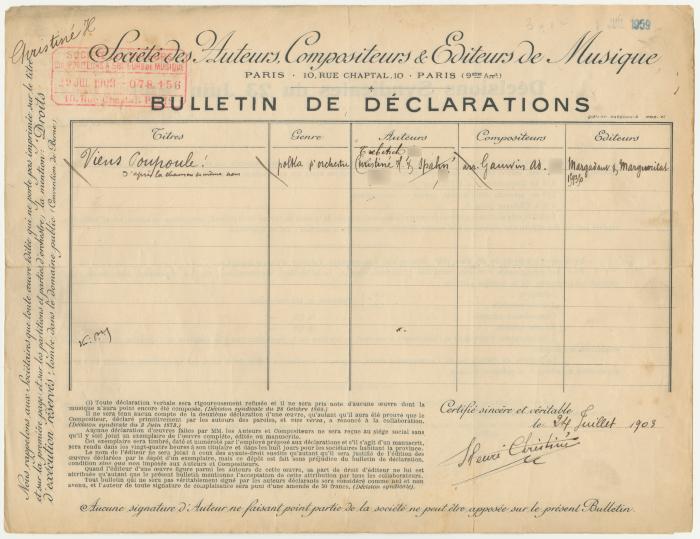 Christiné H
JUIL 1959
Société des Auteurs, Compositeurs & Editeurs de Musique
PARIS · 10, RUE CHAPTAL, 10 · PARIS (9ème Arrt)
29 JUIL 1903 - 078156
10, Rue Chaptal, PARIS
BULLETIN DE DÉCLARATIONS
Titres Genre Auteurs Compositeurs Editeurs
Viens Poupoule! polka p' orchestre Christiné H. & Spahn arr. Gauwin Ad. Margadour & Margueritat
d'après la chanson du même nom
1936
Nous rappelons aux Sociétaires que toute œuvre éditée qui ne porte pas imprimée sur le titre
et sur la première page et sur les partitions et parties d'orchestre, la mention: Droits
d'exécution réservés; tombe dans le domaine public (Convention de Berne)
(1) Toute déclaration verbale sera rigoureusement refusée et il ne sera pris note d'aucune œuvre dont la
musique n'aura point encore été composée, (Décision syndicale du 26 Octobre 1865.)
Il ne sera tenu aucun compte de la deuxième déclaration d'une œuvre, qu'autant qu'il aura été prouvé que le
Compositeur, déclaré primitivement par les auteurs des paroles, et vice versa, a renoncé à la collaboration.
Aucune déclaration d'œuvres faites par MM. les Auteurs et Compositeurs ne sera reçue au siège social sans
qu'il y soit joint un exemplaire de l'œuvre complète, éditée ou manuscrite.
Cet exemplaire sera timbré, daté et numéroté par l'employé préposé aux déclarations et s'il s'agit d'un manuscrit,
sera rendu dans les vingt-quatre heures à son titulaire et dans les huit jours pour les sociétaires habitant la province.
Le nom de l'éditeur ne sera jocat à ceux des ayants-droit susdits qu'autant qu'il sera justifié de l'édition des
œuvres déclarées par le dépôt d'un exemplaire sans que ce dépôt en soit fait préjudice du bulletin de déclaration,
condition sine qua non imposée aux Auteurs et Compositeurs.
Quand l'éditeur d'une œuvre figure parmi les auteurs de cette œuvre, sa part de droit d'éditeur ne lui est
attribuée qu'autant que le présent bulletin mentionne l'acceptation de cette attribution par tous les collaborateurs.
Tout bulletin qui ne sera pas véritablement signé par les auteurs déclarants sera considéré comme nul et non
avenu, et l'auteur de toute signature de complaisance sera puni d'une amende de 50 francs, (Décision syndicale).
Certifié sincère et véritable
le 24 Juillet 1903
Henri Christiné
Aucune signature d'Auteur ne faisant point partie de la société ne peut être apposée sur le présent Bulletin.